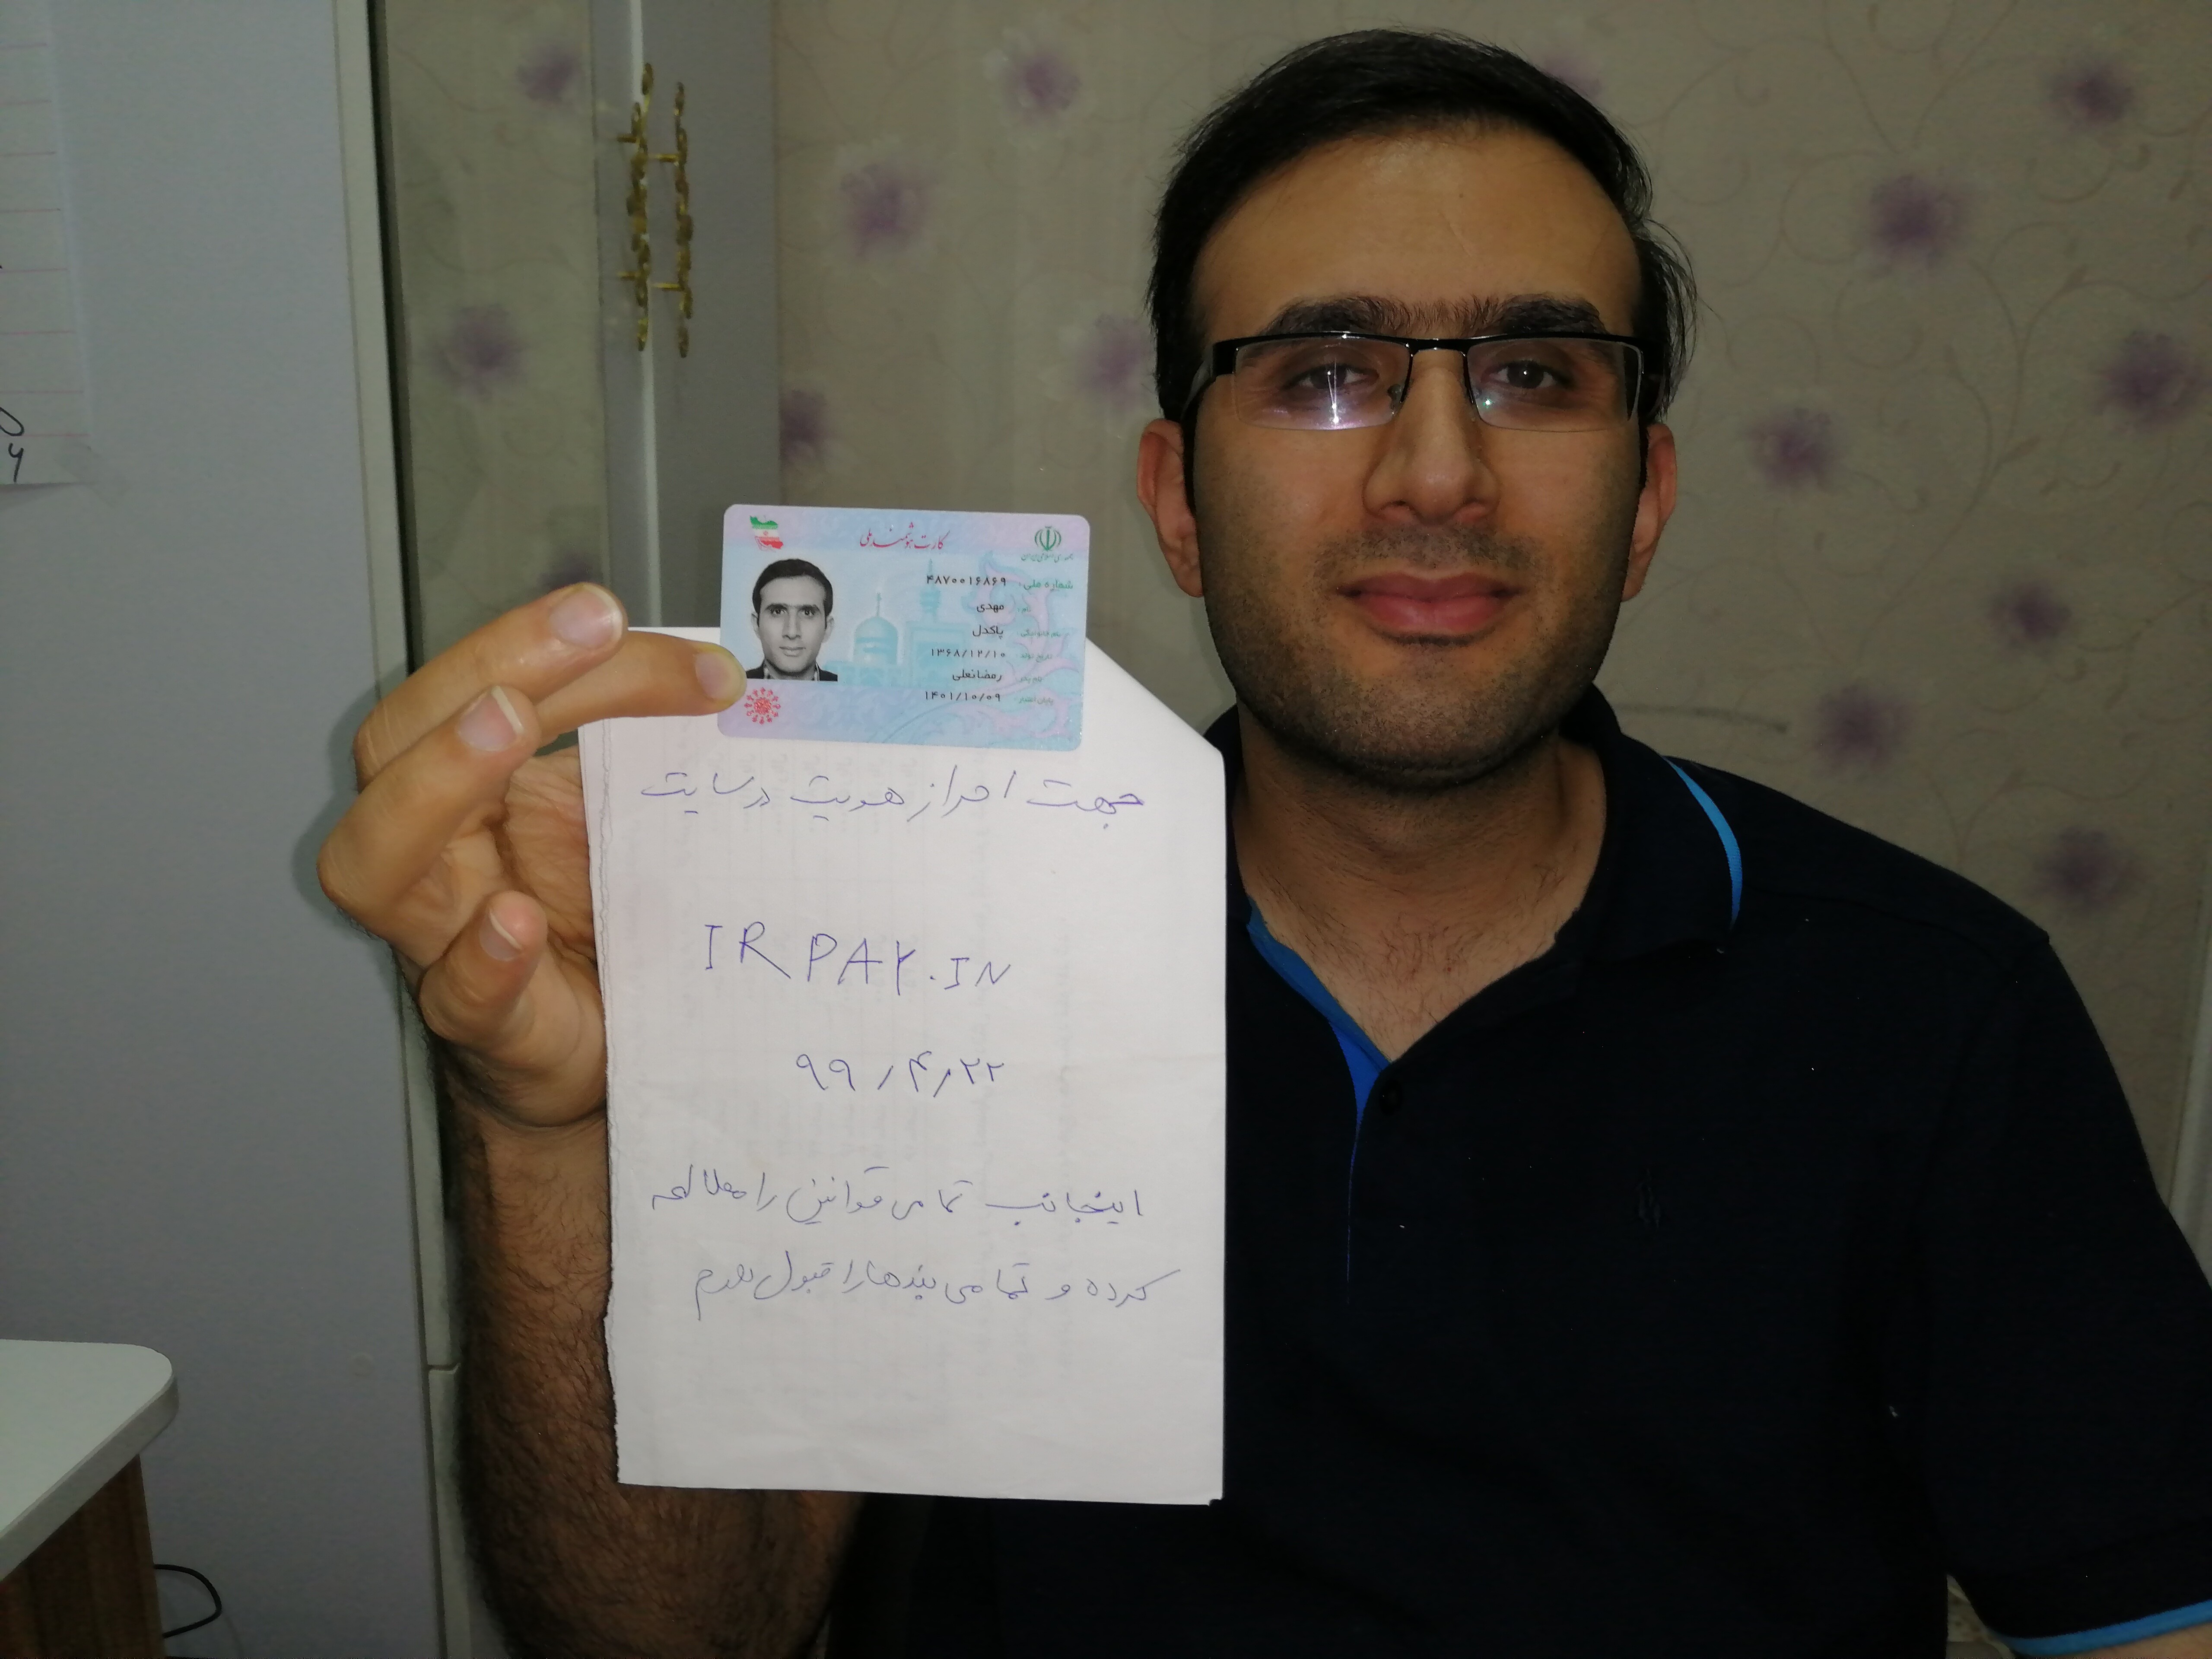 کارت هوشمند ملی
جمهوری اسلامی ایران
شماره ملی: ۴۸۷۰۰۱۶۸۶۹
نام: مهدی
نام خانوادگی: پاکدل
تاریخ تولد: ۱۳۶۸/۱۲/۱۰
نام پدر: رمضانعلی
پایان اعتبار: ۱۴۰۱/۱۰/۰۹
جهت احراز هویت در سایت
IRPAY.IN
۹۹/۴/۲۲
اینجانب تمامی قوانین را مطالعه
کرده و تمامی بندها را قبول دارم